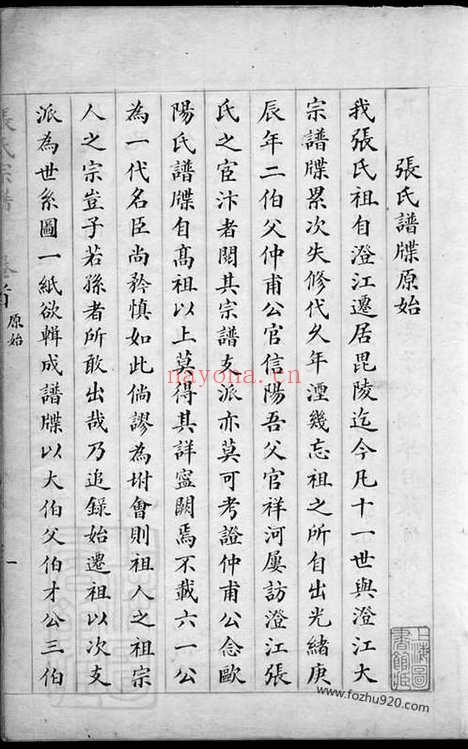 張氏譜牒原始
我張氏祖自澄江遷居毘陵迄今凡十一世與澄江大
宗譜牒累次失修代久年湮幾忘祖之所自出光緒庚
辰年二伯父仲甫公官信陽吾父官祥河屢訪澄江張
氏之宦汴者閱其宗譜支派亦莫可考證仲甫公念歐
陽氏譜牒自髙祖以上莫得其詳寧闕焉不載六一公
為一代名臣尚矜慎如此倘謬為坿會則祖人之祖宗
人之宗豈子若孫者所敢出哉乃追錄始遷祖以次支
派為世系圖一紙欲輯成譜牒以大伯父伯才公三伯
張氏宗譜
卷首
原始
一
上海圖書館藏
nayona.cn
www.fozhu920.com